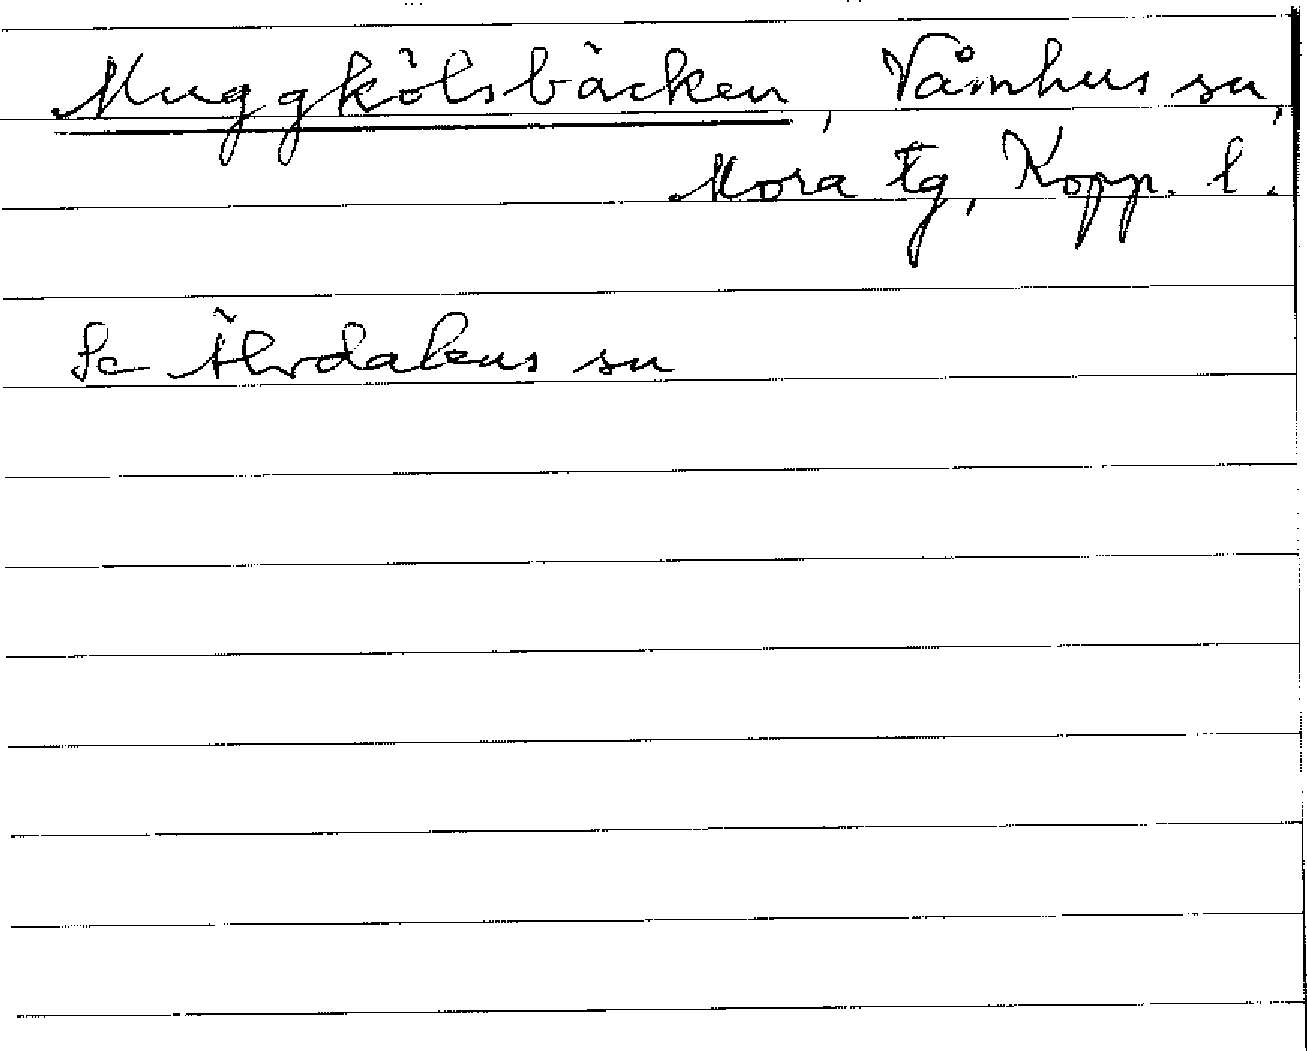 Muggkölsbäcken, Våmhus sn,
Mora tg, Kopp. l.
Se Älvdalens sn